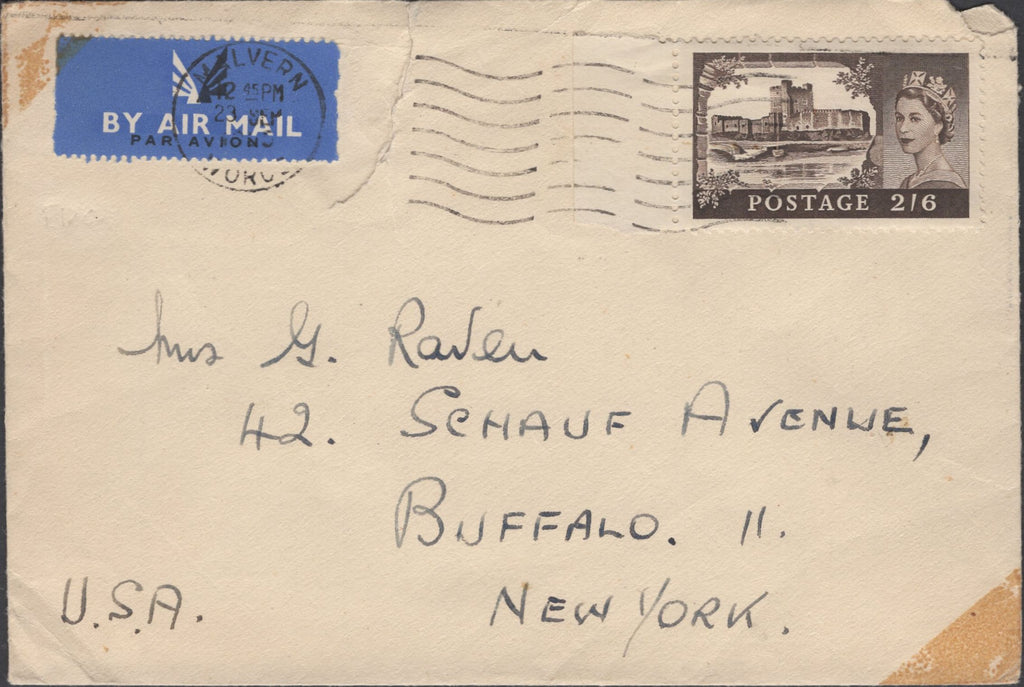 BY AIR MAIL
PAR AVION
MALVERN
12 45 PM
23
POSTAGE 2/6
Mrs G. Raven
42. SCHAUF AVENUE,
BUFFALO. 11.
U.S.A. NEW YORK.